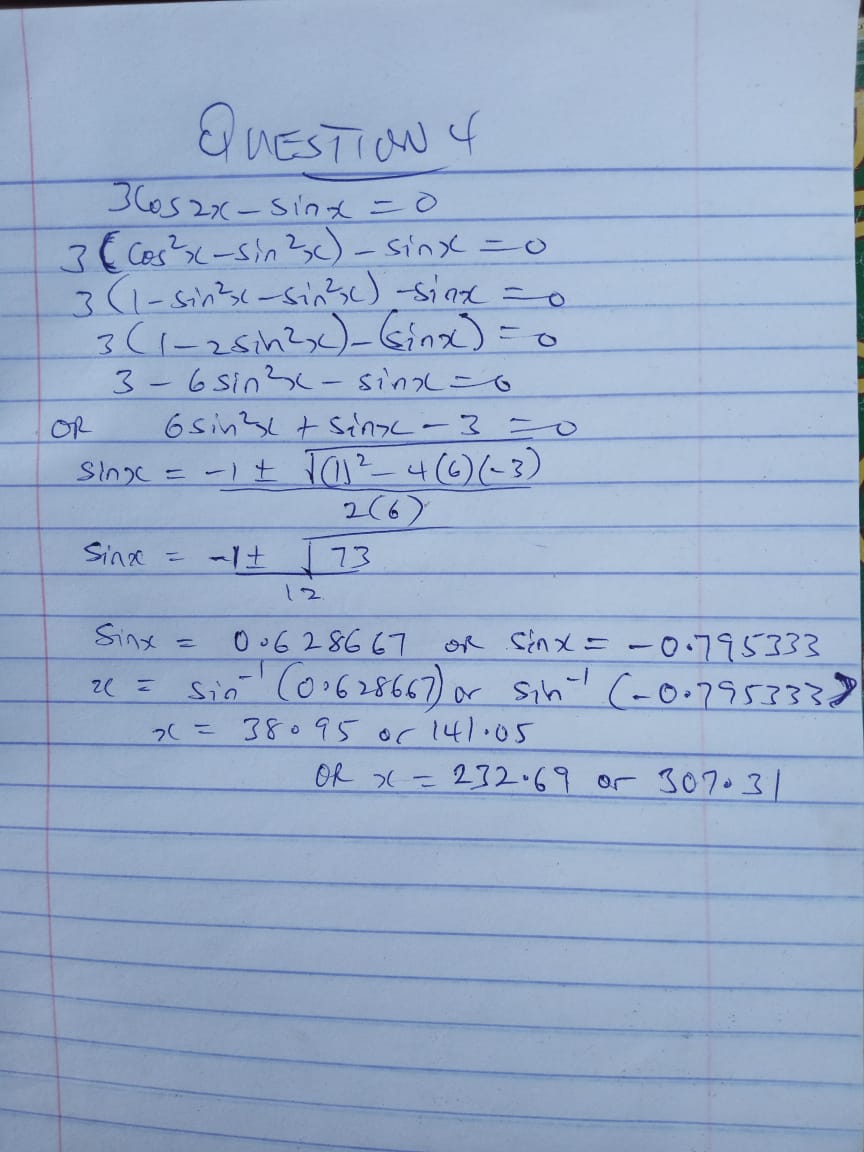 QUESTION 4
3Cos2x - sinx = 0
3(Cos²x - sin²x) - sinx = 0
3(1 - sin²x - sin²x) - sinx = 0
3(1 - 2sin²x) - (sinx) = 0
3 - 6sin²x - sinx = 0
OR 6sin²x + sinx - 3 = 0
sinx = -1 ± √(1)² - 4(6)(-3)
2(6)
Sinx = -1 ± √73
12
Sinx = 0.628667 or sinx = -0.795333
x = sin⁻¹(0.628667) or sin⁻¹(-0.795333)
x = 38.95 or 141.05
OR x = 232.69 or 307.31